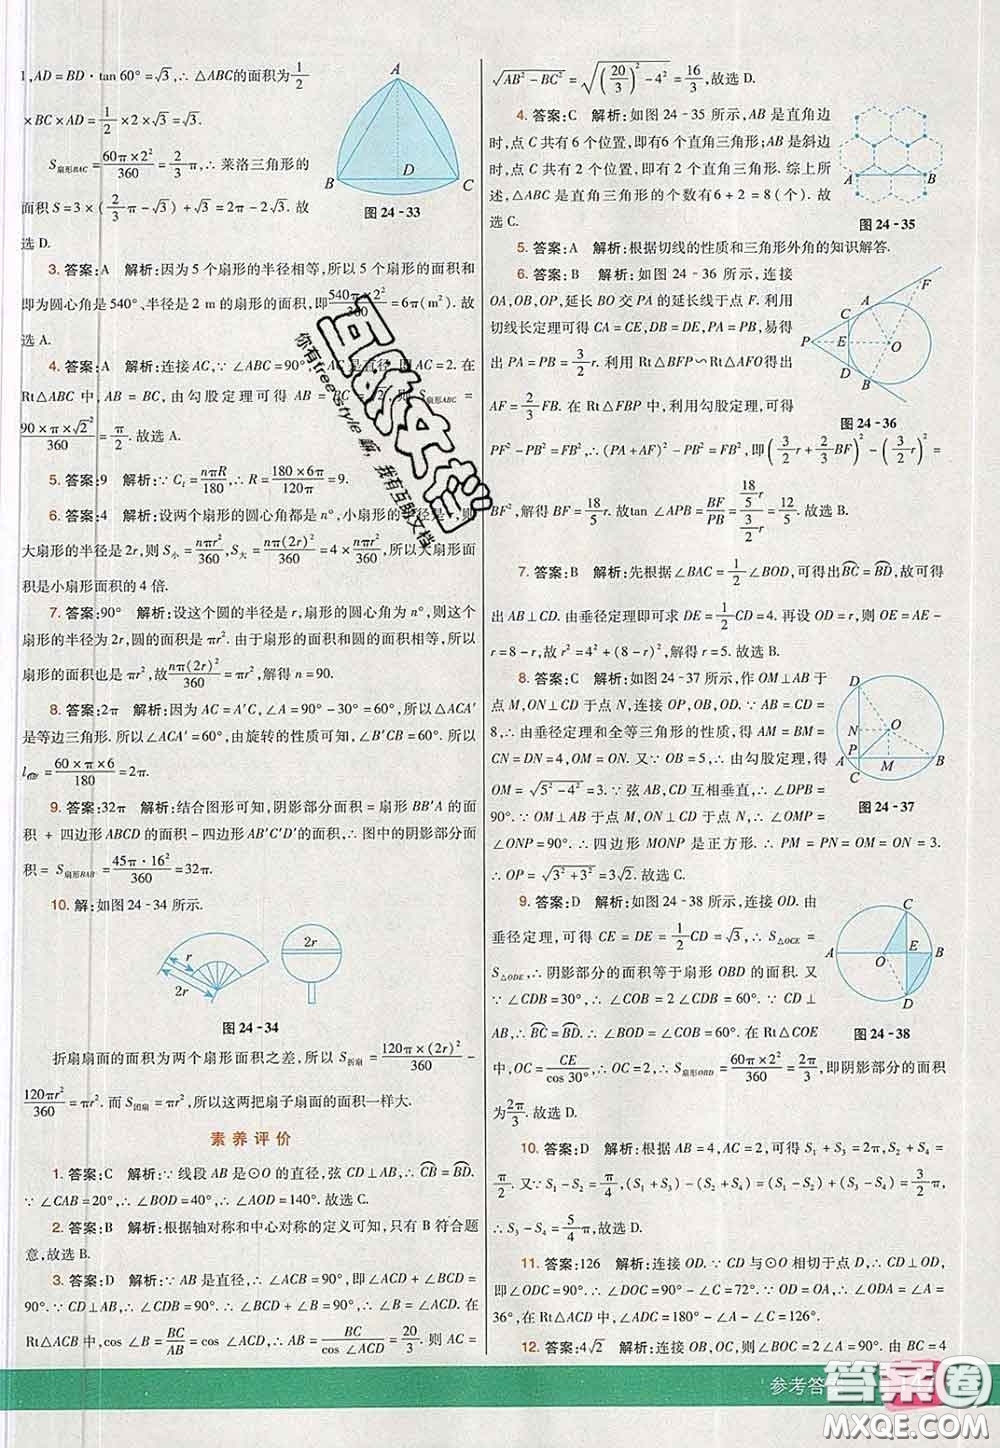 1, AD = BD · tan 60° = √3, ∴ △ABC的面积为1/2
× BC × AD = 1/2 × 2 × √3 = √3.
S扇形BAC = 60π × 2²/360 = 2/3 π, ∴ 莱洛三角形的
面积 S = 3 × (2/3 π - √3) + √3 = 2π - 2√3. 故
选 D.
A
B
D
C
图 24 - 33
3. 答案: A 解析: 因为 5 个扇形的半径相等, 所以 5 个扇形的面积和
即为圆心角是 540°、半径是 2 m 的扇形的面积, 即 540π × 2²/360 = 6π(m²). 故
选 A.
4. 答案: A 解析: 连接 AC, ∵ ∠ABC = 90°, AC 是直径, 即 AC = 2. 在
Rt△ABC 中, AB = BC, 由勾股定理可得 AB = BC = √2, S扇形ABC =
90 × π × √2²/360 = π/2. 故选 A.
5. 答案: 9 解析: ∵ Cl = nπR/180, ∴ R = 180 × 6π/120π = 9.
6. 答案: 4 解析: 设两个扇形的圆心角都是 n°, 小扇形的半径是 r, 则
大扇形的半径是 2r, 则 S小 = nπr²/360, S大 = nπ(2r)²/360 = 4 × nπr²/360, 所以大扇形面
积是小扇形面积的 4 倍.
7. 答案: 90° 解析: 设这个圆的半径是 r, 扇形的圆心角为 n°, 则这个
扇形的半径为 2r, 圆的面积是 πr². 由于扇形的面积和圆的面积相等, 所以
扇形的面积也是 πr², 故 nπ(2r)²/360 = πr², 解得 n = 90.
8. 答案: 2π 解析: 因为 AC = A′C, ∠A = 90° - 30° = 60°, 所以△ACA′
是等边三角形. 所以∠ACA′ = 60°, 由旋转的性质可知, ∠B′CB = 60°. 所以
= 60 × π × 6/180 = 2π.
9. 答案: 32π 解析: 结合图形可知, 阴影部分面积 = 扇形 BB′A 的面
积 + 四边形 ABCD 的面积 - 四边形 AB′C′D′的面积, ∴ 图中的阴影部分面
积 = S扇形BAB′ = 45π · 16²/360 = 32π.
10. 解: 如图 24 - 34 所示.
r
2r
2r
图 24 - 34
折扇扇面的面积为两个扇形面积之差, 所以 S折扇 = 120π × (2r)²/360 -
120πr²/360 = πr². 而 S团扇 = πr², 所以这两把扇子扇面的面积一样大.
素养评价
1. 答案: C 解析: ∵ 线段 AB 是⊙O 的直径, 弦 CD⊥AB, ∴ CB = BD.
∵ ∠CAB = 20°, ∴ ∠BOD = 40°, ∴ ∠AOD = 140°. 故选 C.
2. 答案: B 解析: 根据轴对称和中心对称的定义可知, 只有 B 符合题
意, 故选 B.
3. 答案: D 解析: ∵ AB 是直径, ∴ ∠ACB = 90°, ∴ ∠ACD + ∠BCD =
90°. ∵ CD⊥AB, ∴ ∠BCD + ∠B = 90°, ∴ ∠B = ∠ACD. ∵ cos ∠ACD = . 在
Rt△ACB 中, cos ∠B = BC/AB = cos ∠ACD, ∴ AB = BC/cos ∠ACD = 20/3. 则 AC =
√(AB² - BC²) = √((20/3)² - 4²) = 16/3, 故选 D.
4. 答案: C 解析: 如图 24 - 35 所示, AB 是直角边
时, 点 C 共有 6 个位置, 即有6个直角三角形; AB 是斜边
时, 点 C 共有 2 个位置, 即有 2 个直角三角形. 综上所
述, △ABC 是直角三角形的个数有 6 + 2 = 8(个). 故
选 C.
A
B
图 24 - 35
5. 答案: A 解析: 根据切线的性质和三角形外角的知识解答.
6. 答案: B 解析: 如图 24 - 36 所示, 连接
OA, OB, OP, 延长 BO 交 PA 的延长线于点 F. 利用
切线长定理可得 CA = CE, DE = DB, PA = PB, 易得
出 PA = PB = 3/2 r. 利用 Rt△BFP∽Rt△AFO得出
AF = 2/3 FB. 在 Rt△FBP 中, 利用勾股定理, 可得
F
A
C
P
E
O
D
B
图 24 - 36
PF² - PB² = FB², ∴ (PA + AF)² - PB² = FB², 即 (3/2 r + 2/3 BF)² - (3/2 r)² =
BF², 解得 BF = 18/5 r. 故tan ∠APB = BF/PB = (18/5 r)/(3/2 r) = 12/5. 故选 B.
7. 答案: B 解析: 先根据∠BAC = 1/2 ∠BOD, 可得出 BC = BD, 故可得
出 AB⊥CD, 由垂径定理即可求 DE = 1/2 CD = 4. 再设 OD = r, 则 OE = AE -
r = 8 - r, 故 r² = 4² + (8 - r)², 解得 r = 5. 故选 B.
8. 答案: C 解析: 如图 24 - 37 所示, 作 OM⊥AB 于
点 M, ON⊥CD 于点 N, 连接 OP, OB, OD. ∵ AB = CD =
8, ∴ 由垂径定理和全等三角形的性质, 得 AM = BM =
CN = DN = 4, ∴ 由勾股定理, 得 ON =
OM = √(5² - 4²) = 3. ∵ 弦 AB, CD 互相垂直, ∴ ∠DPB =
90°. ∵ OM⊥AB 于点 M, ON⊥CD 于点 N, ∴ ∠OMP =
∠ONP = 90°. ∴ 四边形 MONP 是正方形. ∴ PM = PN = OM = ON = 3.
∴ OP = √(3² + 3²) = 3√2. 故选 C.
D
N
O
P
A
M
B
C
图 24 - 37
9. 答案: D 解析: 如图 24 - 38 所示, 连接 OD. 由
垂径定理, 可得 CE = DE = 1/2 CD = √3, ∴ S△OCE =
S△ODE, ∴ 阴影部分的面积等于扇形 OBD 的面积. 又
∵ ∠CDB = 30°, ∴ ∠COB = ∠CDB = 60°. ∵ CD⊥
AB, ∴ BC = BD. ∴ ∠BOD = ∠COB = 60°. 在 Rt△COE
中, OC = CE/cos 30°, ∴ OC = 2, ∴ S扇形OBD = 60π × 2²/360 = 2π/3, 即阴影部分的面积
为 2π/3. 故选 D.
C
A
O
E
B
D
图 24 - 38
10. 答案: D 解析: 根据 AB = 4, AC = 2, 可得 S₁ + S₃ = 2π, S₂ + S₄ =
π/2. 又∵ S₁ - S₂ = π/4, (S₁ + S₃) - (S₂ + S₄) = (S₁ - S₂) + (S₃ - S₄) = 3/2 π,
∴ S₃ - S₄ = 5/4 π, 故选 D.
11. 答案: 126 解析: 连接 OD. ∵ CD 与⊙O 相切于点 D, ∴ CD⊥OD,
∴ ∠ODC = 90°. ∴ ∠DOC = 90° - ∠C = 72°. ∵ OD = OA, ∴ ∠A =
36°, 在 Rt△ACD 中, ∠ADC = 180° - ∠A - ∠C = 126°.
12. 答案: 4√2 解析: 连接 OB, OC, 则∠BOC = 2∠A = 90°. 由 BC = 4
参考答
互助文档
你有freestyle 嗬, 我有互助文档
答案圈
MXQE.COM